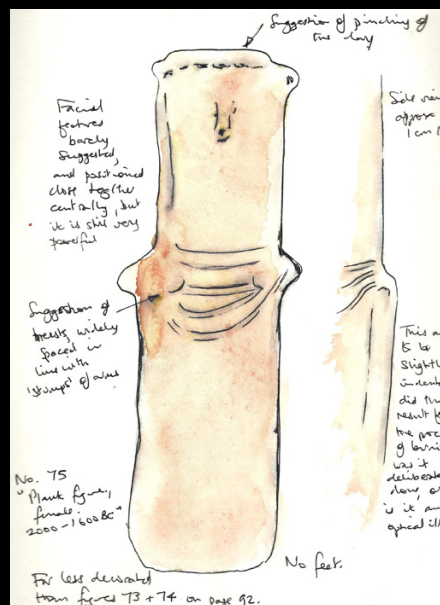 Suggestion of pinching of
the clay
Facial
features
barely
suggested,
and positioned
close together
centrally, but
it is still very
powerful
Side view
approx
1 cm
Suggestion of
breasts, widely
spaced in
line with
'stumps' of arms
This
to be
slightly
indent
did this
result f
the proc
of burni
was it
deliberate
done, or
is it an
optical ill
No. 75
"Plank figure,
female.
2000-1600 BC"
No feet.
Far less decorated
than figures 73 + 74 on page 92.